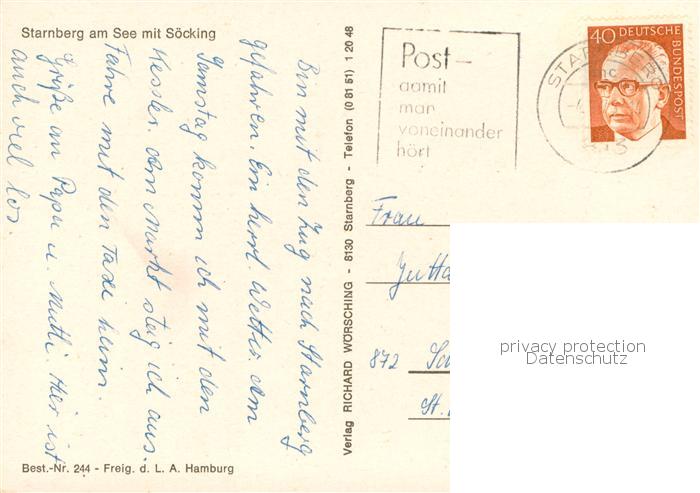 Starnberg am See mit Söcking
Bin mit den Zug nach Starnberg
gefahren. Ein herrl. Wetter. Am
Samstag komm ich mit den
dem Markt steig ich aus.
Fahre mit den Taxi heim.
Grüße an Papa u. Mutti. Hier ist
auch viel los.
Best.-Nr. 244 - Freig. d. L. A. Hamburg
Verlag RICHARD WÖRSCHING - 8130 Starnberg - Telefon (0 81 51) 1 20 48
Post-
damit
man
voneinander
hört
STARNBERG
813
40 DEUTSCHE
BUNDESPOST
Frau
Jutta
872
St.
privacy protection
Datenschutz